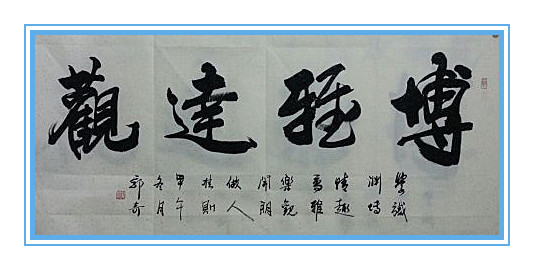 博雅達觀
學識
渊博
情趣
高雅
樂觀
開朗
做人
甲午
冬月
郭奇